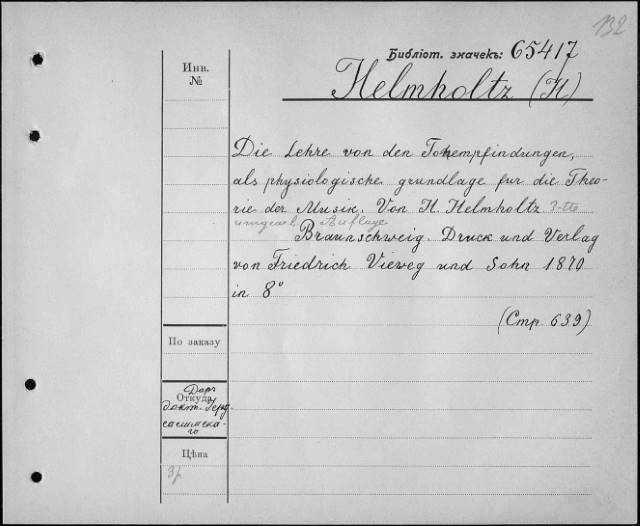 132
Библіот. значекъ: 65417
Инв.
№
Helmholtz (H)
Die Lehre von den Tonempfindungen,
als physiologische grundlage fur die Theo-
rie der Musik. Von H. Helmholtz 3-tte
umgearb. Auflage
Braunschweig. Druck und Verlag
von Friedrich Vieweg und Sohn 1870
in 8°
(Стр. 639)
По заказу
Откуда
Даръ
докт.
Цѣна
3р